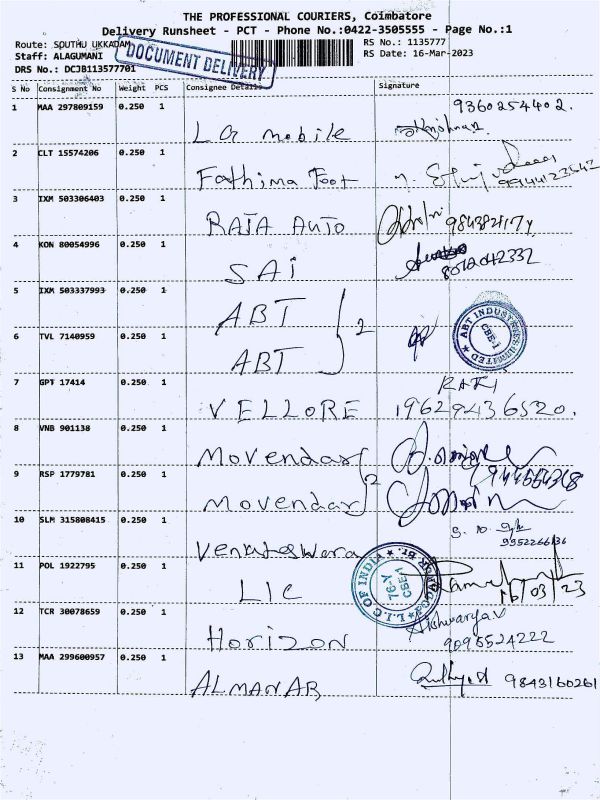 THE PROFESSIONAL COURIERS, Coimbatore
Delivery Runsheet - PCT - Phone No.:0422-3505555 - Page No.:1
Route: SOUTHU UKKADAM
RS No.: 1135777
Staff: ALAGUMANI
RS Date: 16-Mar-2023
DRS No.: DCJB113577701
DOCUMENT DELIVERY
S No Consignment No Weight PCS Consignee Details Signature
1 MAA 297809159 0.250 1 9360254402.
LG mobile
2 CLT 15574206 0.250 1
Fathima Foot
3 IXM 503306403 0.250 1
RAJA AUTO
4 KON 80054996 0.250 1
SAI
5 IXM 503337993 0.250 1
ABT
2
ABT INDUSTRIES LIMITED
CBE-1
6 TVL 7140959 0.250 1
ABT
7 GPT 17414 0.250 1
VELLORE
8 VNB 901138 0.250 1
Movendar
2
9 RSP 1779781 0.250 1
Movendar
10 SLM 315808415 0.250 1
Venkateswara
11 POL 1922795 0.250 1
LIC
L.I.C OF INDIA
76-Y
CBE-1
16/03/23
12 TCR 30078659 0.250 1
Horizon
9095524222
13 MAA 299600957 0.250 1
ALMANAR
9843160261